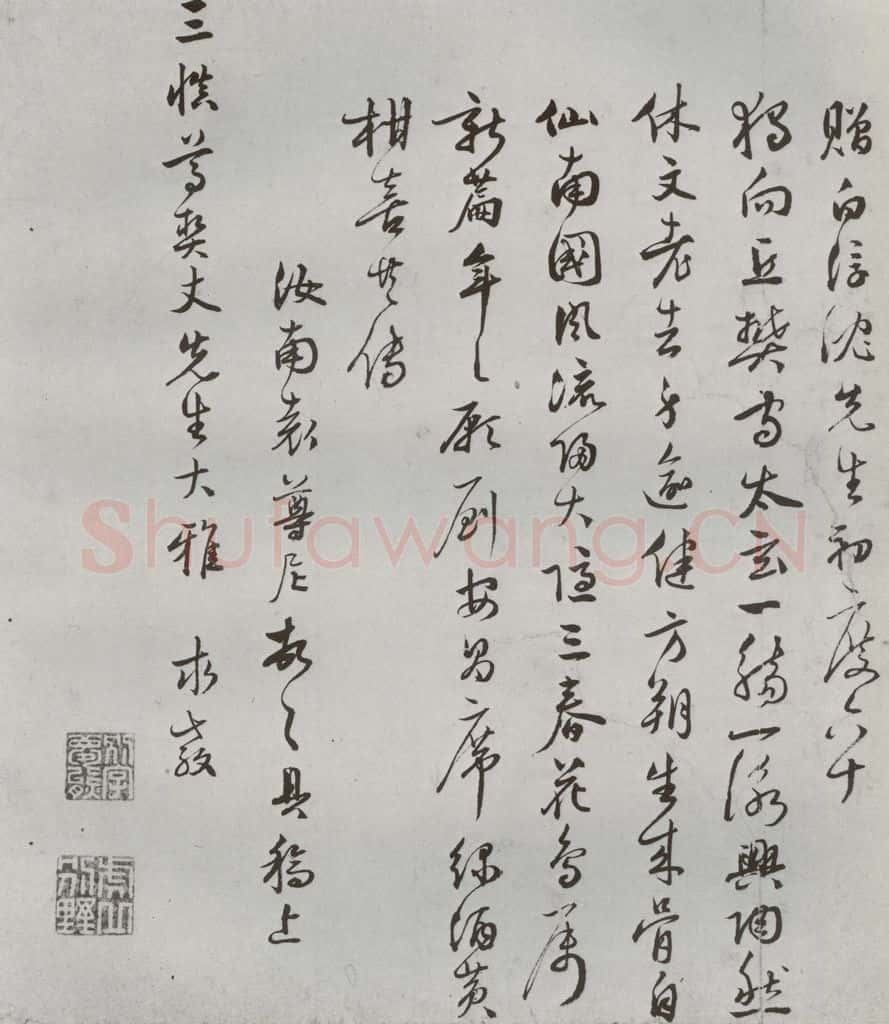 贈白浮沈先生初度六十
獨向丘樊守太玄一觴一詠興陶然
休文老去身逾健方朔生來骨自
仙南國風流歸大隱三春花鳥屬
新篇年〻願到安昌席綠酒黃
柑喜共傳
汝南袁尊尼具稿上
三慎尊契丈先生大雅 求教
Shufawang.CN